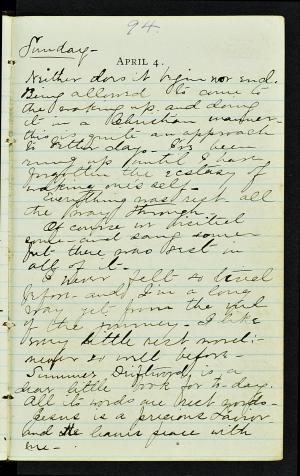 94.
Sunday-
APRIL 4.
Neither does it begin nor end.
Being allowed to come to
the waking up and doing
it in a Christian manner-
this is quite an approach
to other days- I've been
rung up until I have
forgotten the ecstasy of
waking one's self-
Everything was rest all
the way through-
Of course we visited
some- and sang some-
but there was rest in
all of it-
I never felt so tired
before- and I'm a long
way yet from the end
of the journey- I like
my little rest
never so well before-
Summer Driftwood is a
dear little book for to-day.
All its words are rest words-
Jesus is a precious Savior-
and He leaves peace with
me-